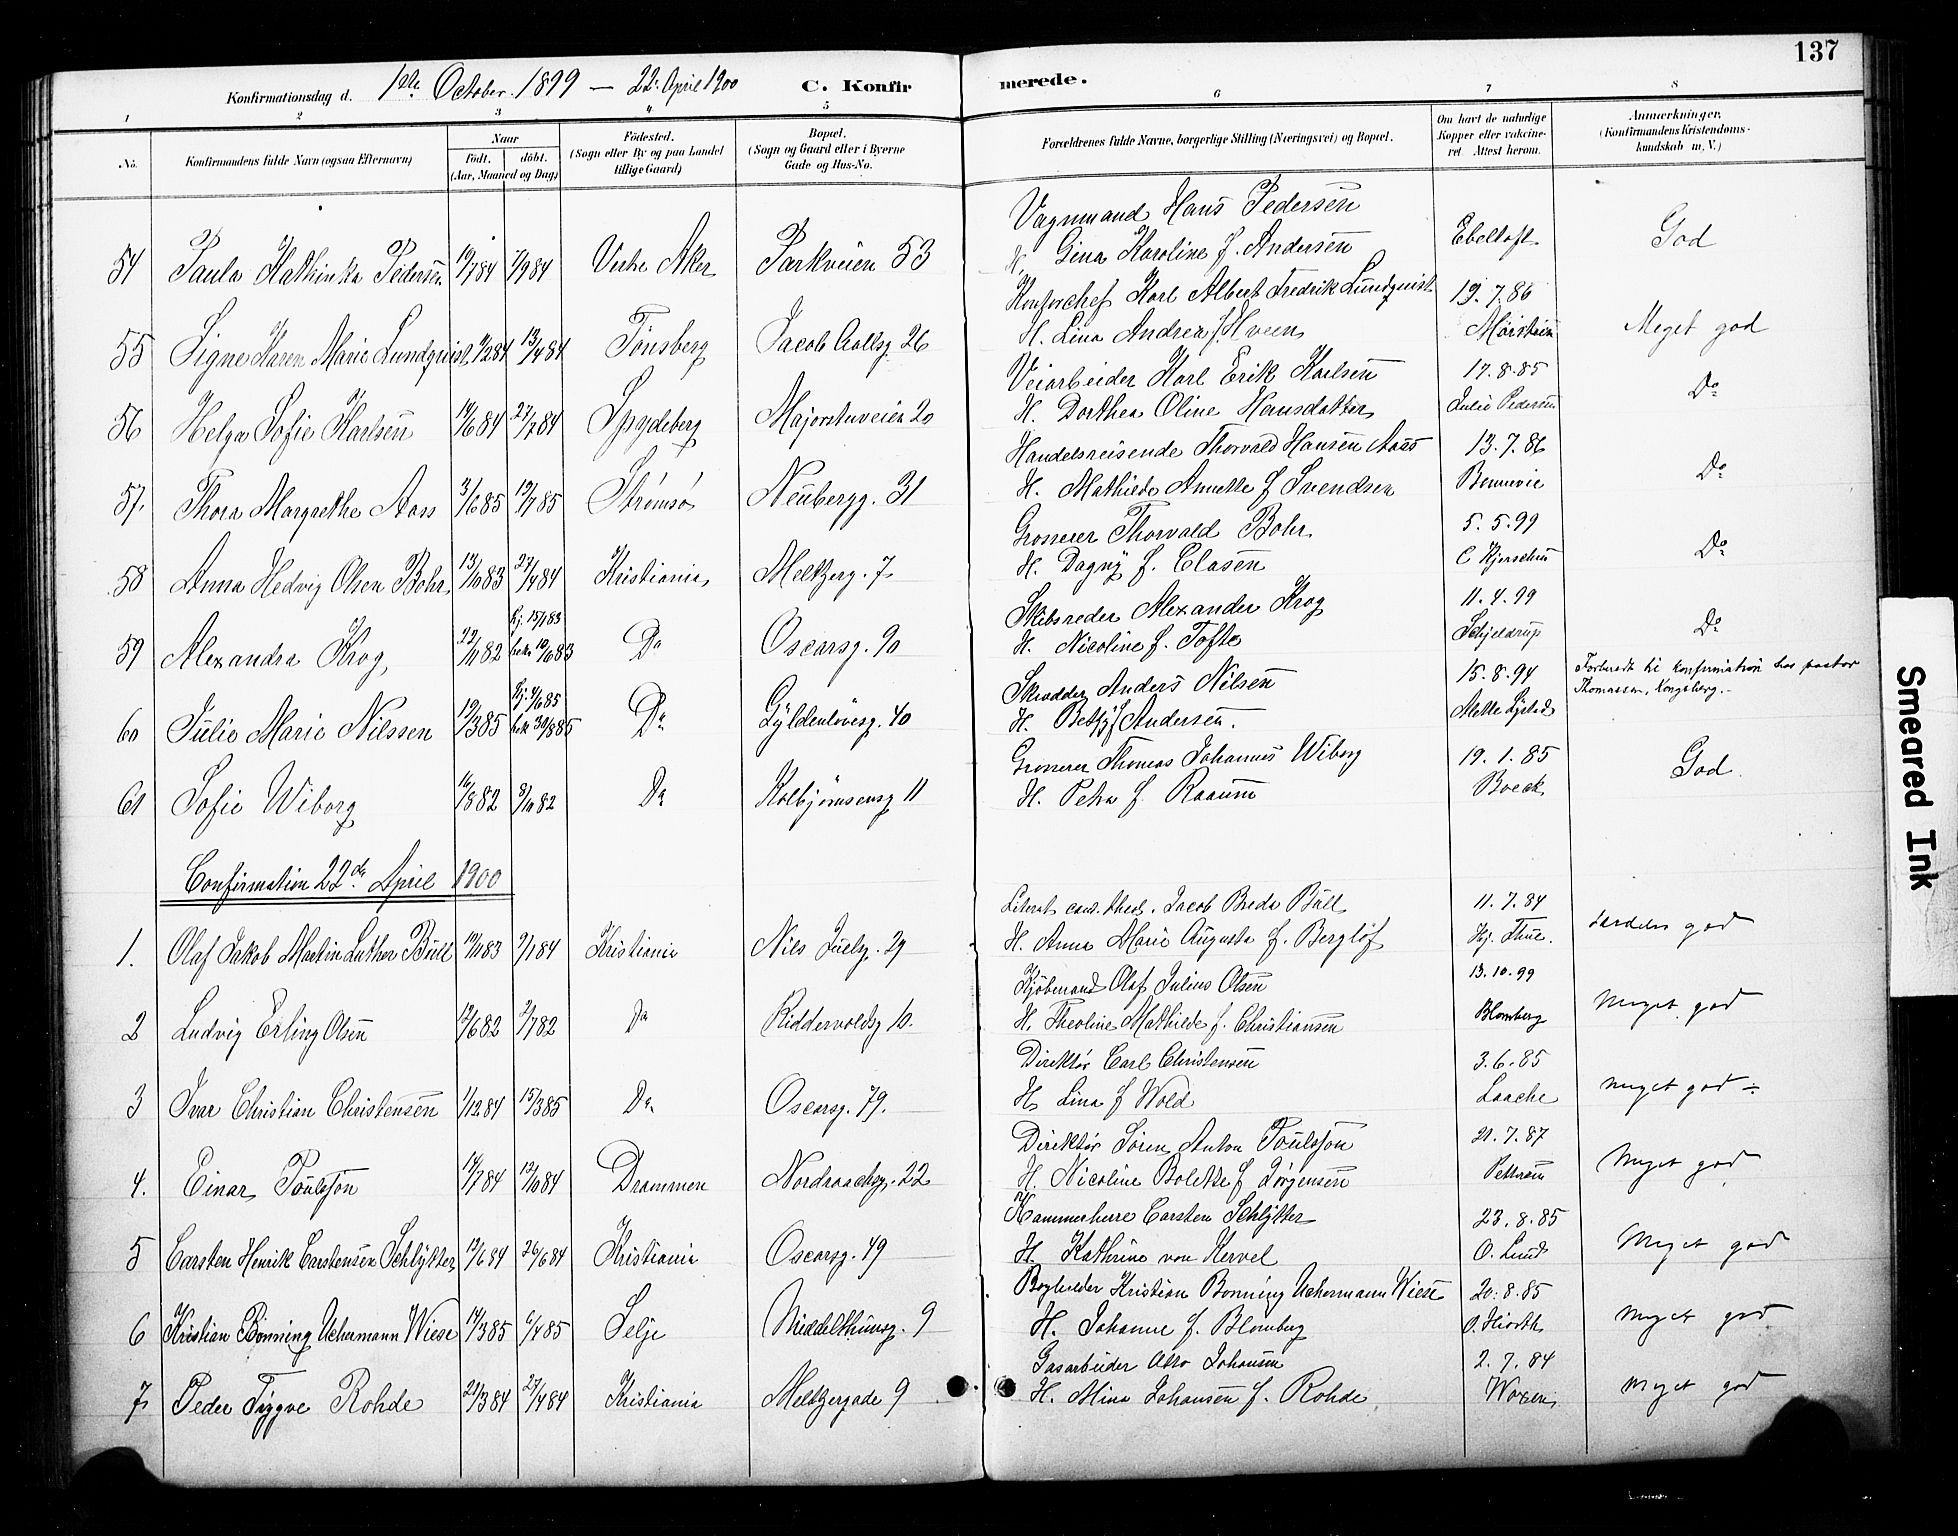 137
Konfirmationsdag d. 1ste October 1899 — 22. April 1900 C. Konfirmerede.
1 2 3 4 5 6 7 8
No. Konfirmandens fulde Navn (ogsaa Efternavn) Naar født. døbt. (Aar, Maaned og Dag) Fødested. (Sogn eller By og paa Landet tillige Gaard) Bopæl. (Sogn og Gaard eller i Byerne Gade og Hus-No. Forældrenes fulde Navne, borgerlige Stilling (Næringsvei) og Bopæl. Om havt de naturlige Kopper eller vaccineret. Attest herom. Anmærkninger. (Konfirmandens Kristendomskundskab m. V.)
Vognmand Hans Pedersen
54 Paula Kathinka Pedersen 19/7 84 7/9 84 Vestre Aker Parkveien 53 H. Gina Karoline f. Andersen Ebeltoft God
Kontorchef Karl Albert Fredrik Lundqvist 19.7.86
55 Signe Karen Marie Lundqvist 4/2 84 13/4 84 Tønsberg Jacob Aallsg. 26 H. Lina Andrea f. Hveen Mørstein Meget god
Veiarbeider Karl Erik Karlsen 17.8.85
56 Helga Sofie Karlsen 14/6 84 27/7 84 Spydeberg Majorstuveien 20 H. Dorthea Oline Hansdatter Julie Pedersen Do
Handelsreisende Thorvald Hansen Aass 13.7.86
57. Thora Margrethe Aass 3/6 85 19/7 85 Strømsø Neubergg. 31 H. Mathilde Annette f Svendsen Bonnevie Do
Grosserer Thorvald Bohr 5.5.99
58 Anna Hedvig Olsen Bohr 13/10 83 27/4 84 Kristiania Meltzersg. 7 H. Dagny f. Clasen C Hjerschen Do
Hj. 15/1 83 Skibsreder Alexander Krog 11.4.99
59 Alexandra Krog 22/11 82 bekr 10/6 83 Do Oscarsg. 90 H. Nicoline f. Tofte Schjeldrup Do
Hj. 4/6 85 Skrædder Anders Nilsen 15.8.94 Forberedt til konfirmation hos pastor
60 Julie Marie Nilssen 19/3 85 bek 30/8 85 Do Gyldenløvesg. 40 H. Betsy f Andersen. Mette Lysted Thomassen, Kongsberg.
Grosserer Thomas Johannes Wiborg 19.1.85
61 Sofie Wiborg 16/8 82 3/10 82 Do Kolbjørnsensg 11 H. Petra f. Raaum Boeck God.
Confirmation 22de April 1900
Literat cand. theol. Jacob Breda Bull 11.7.84
1. Olaf Jakob Martin Luther Bull 10/11 83 9/1 84 Kristiania Nils Juelsg. 29 H. Anna Marie Augusta f. Berglöf Hj. Thue. særdeles god
Kjøbmand Olaf Julius Olsen 13.10.99
2 Ludvig Erling Olsen 12/6 82 2/7 82 Do Riddervoldsg 10. H. Theoline Mathilde f. Christiansen Blomberg Meget god
Direktør Carl Christensen 3.6.85
3 Ivar Christian Christensen 1/12 84 15/3 85 Do Oscarsg. 79. H. Lina f Wold Laache meget god ÷
Direktør Søren Anton Poulsson 21.7.87
4. Einar Poulsson 14/7 84 12/10 84 Drammen Nordraachsg. 22 H. Nicoline Bolette f Jørgensen Pettersen Meget god
Kammerherre Carsten Schlytter 23.8.85
5 Carsten Henrik Carstensen Schlytter 12/6 84 26/6 84 Kristiania Oscarsg. 49 H. Kathrine von Kervel O. Lund Meget god
Bogholder Kristian Bonning Uchermann Wiese 20.8.85
6 Kristian Bönning Uchermann Wiese 14/3 85 6/4 85 Selje Middelthunsg. 9 H. Johanne f. Blomberg O. Hiorth meget god
Gasarbeider Otto Johansen 2.7.84
7. Peder Tryggve Rohde 21/3 84 27/4 84 Kristiania Meltzersgade 9 H. Mina Johansen f. Rohde Woxen meget god
Smeared Ink